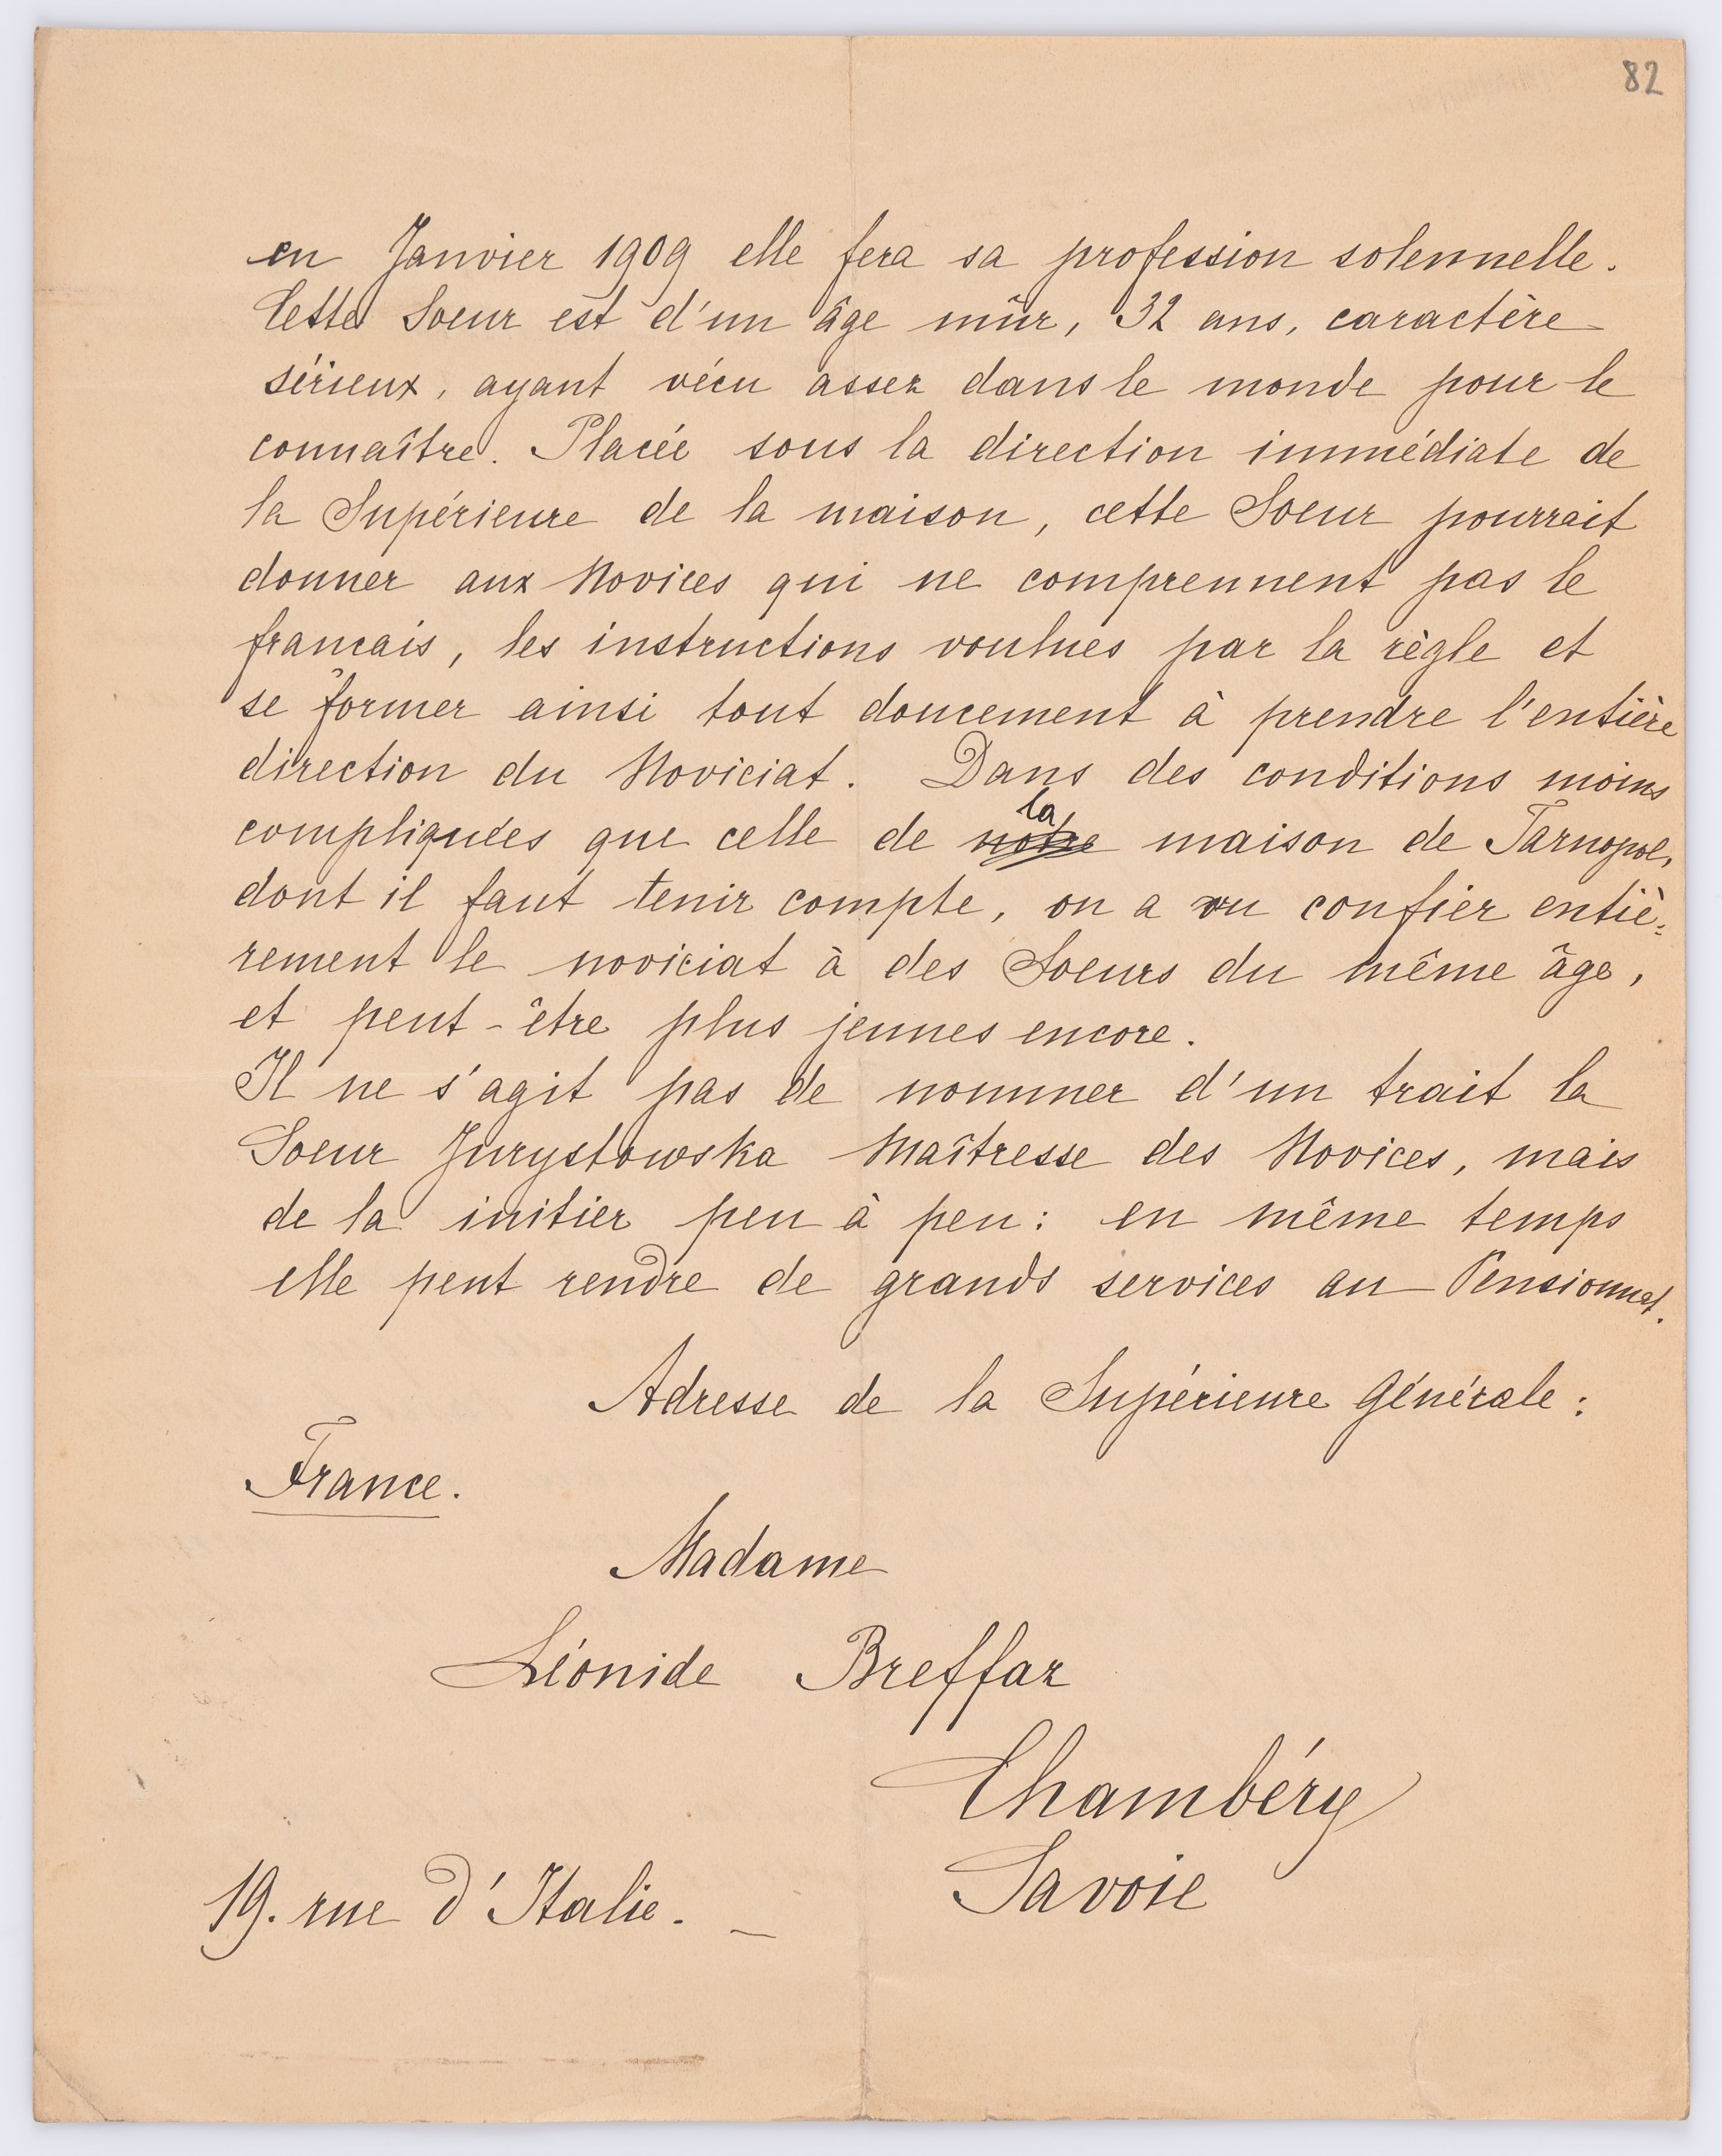 82
en Janvier 1909 elle fera sa profession solennelle.
Cette Soeur est d'un âge mûr, 32 ans, caractère
sérieux, ayant vécu assez dans le monde pour le
connaître. Placée sous la direction immédiate de
la Supérieure de la maison, cette Soeur pourrait
donner aux Novices qui ne comprennent pas le
francais, les instructions voulues par la règle et
se former ainsi tout doucement à prendre l'entière
direction du Noviciat. Dans des conditions moins
la
compliquées que celle de notre maison de Tarnopol,
dont il faut tenir compte, on a vu confier entiè:
rement le noviciat à des Soeurs du même âge,
et peut-être plus jeunes encore.
Il ne s'agit pas de nommer d'un trait la
Soeur Jurystowska Maîtresse des Novices, mais
de la initier peu à peu: en même temps
elle peut rendre de grands services au Pensionnat.
Adresse de la Supérieure Générale:
France.
Madame
Léonide Breffaz
Chambéry
Savoie
19. rue d'Italie. _